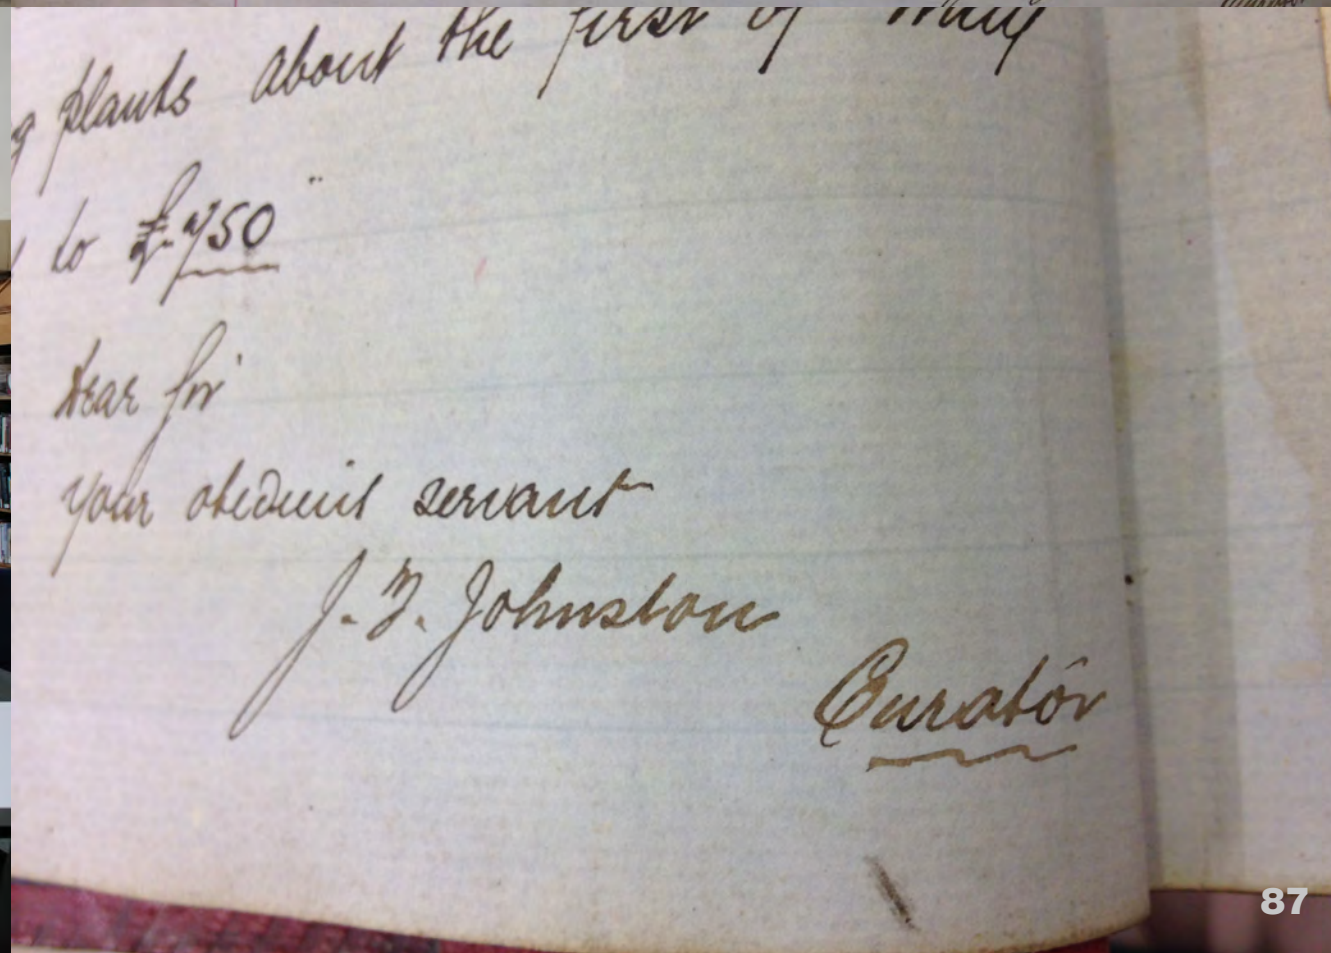 plants about the first of May
to £.750
Dear Sir
your obedient servant
J. F. Johnston
Curator
87